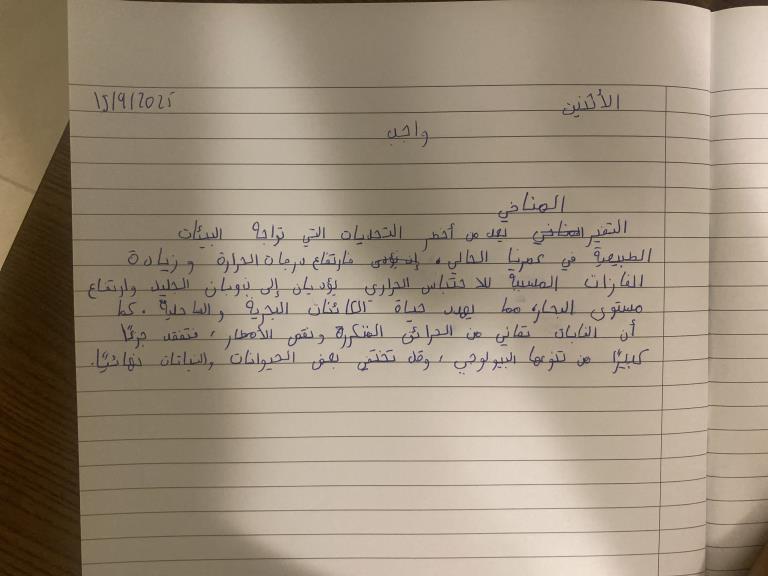 الأثنين 15/9/2025
واجب
المناخي
التغير المناخي يعد من أخطر التحديات التي تواجه البيئات
الطبيعية في عصرنا الحالي. إن يؤدي فارتفاع درجات الحرارة وزيادة
الغازات المسببة للاحتباس الحراري يؤديان إلى ذوبان الجليد وارتفاع
مستوى البحار، مما يهدد حياة الكائنات البحرية والساحلية. كما
أن الغابات تعاني من الحرائق المتكررة ونقص الأمطار، فتفقد جزءًا
كبيرًا من تنوعها البيولوجي، وقد تختفي بعض الحيوانات والنباتات نهائيًا.